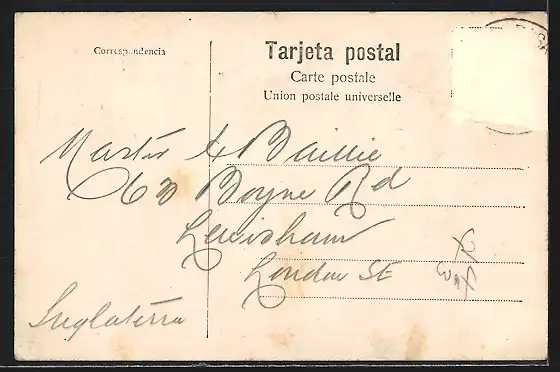 Correspondencia
Tarjeta postal
Carte postale
Union postale universelle
Master Baillie
63 Boyne Rd
Lewisham
London SE
Inglaterra